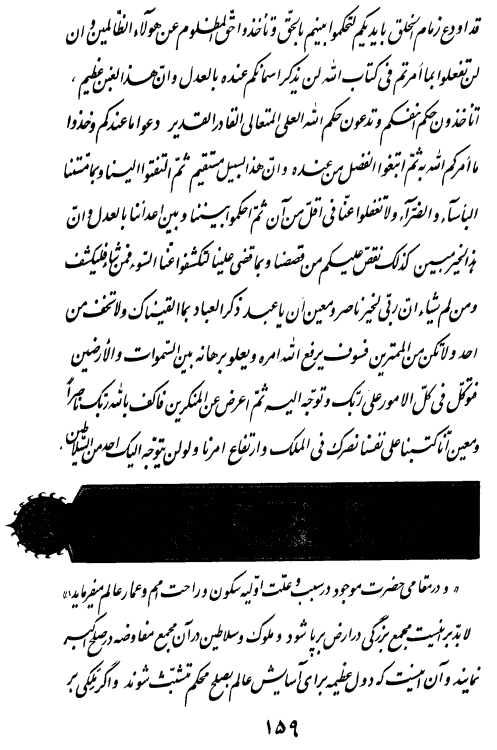 قد اودع زمام الخلق بایدیکم لتحکموا بینهم بالحقّ و تأخذوا حقّ المظلوم عن هؤلآء الظّالمین و ان
لن تفعلوا بما امرتم فی کتاب اللّه لن یذکر اسمائکم عنده بالعدل و انّ هذا لغبن عظیم ،
أتأخذون حکم انفسکم و تدعون حکم اللّه العلی المتعالی القادر القدیر دعوا ما عندکم و خذوا
ما امرکم اللّه به ثمّ ابتغوا الفضل من عنده و انّ هذا لسبیل مستقیم ثمّ التفتوا الینا و بما مسّتنا
البأسآء و الضّرّآء و لا تغفلوا عنّا فی اقلّ من آن ثمّ احکموا بیننا و بین اعدائنا بالعدل و انّ
هذا لخیر مبین کذلک نقصّ علیکم من قصصنا و بما قضی علینا لتکشفوا عنّا السّوء فمن شآء فلیکشف
و من لم یشاء انّ ربّی لخیر ناصر و معین أن یا عبد ذکر العباد بما القیناک و لا تخف من
احد و لا تکن من الممترین فسوف یرفع اللّه امره و یعلو برهانه بین السّموات و الأرضین
فتوکّل فی کلّ الامور علی ربّک و توجّه الیه ثمّ اعرض عن المنکرین فاکف باللّه ربّک ناصراً
و معین انّا کتبنا علی نفسنا نصرک فی الملک و ارتفاع امرنا و لو لن یتوجّه الیک احد من السّلاطین .
« و در مقامی حضرت موجود در سبب و علّت اوّلیه سکون و راحت امم و عمار عالم میفرماید (۱)
لابدّ بر اینست مجمع بزرگی در ارض برپا شود و ملوک و سلاطین در آن مجمع مفاوضه در صلح اکبر
نمایند و آن اینست که دول عظیمه برای آسایش عالم بصلح محکم متشبّث شوند و اگر ملِکی بر
۱۵۹